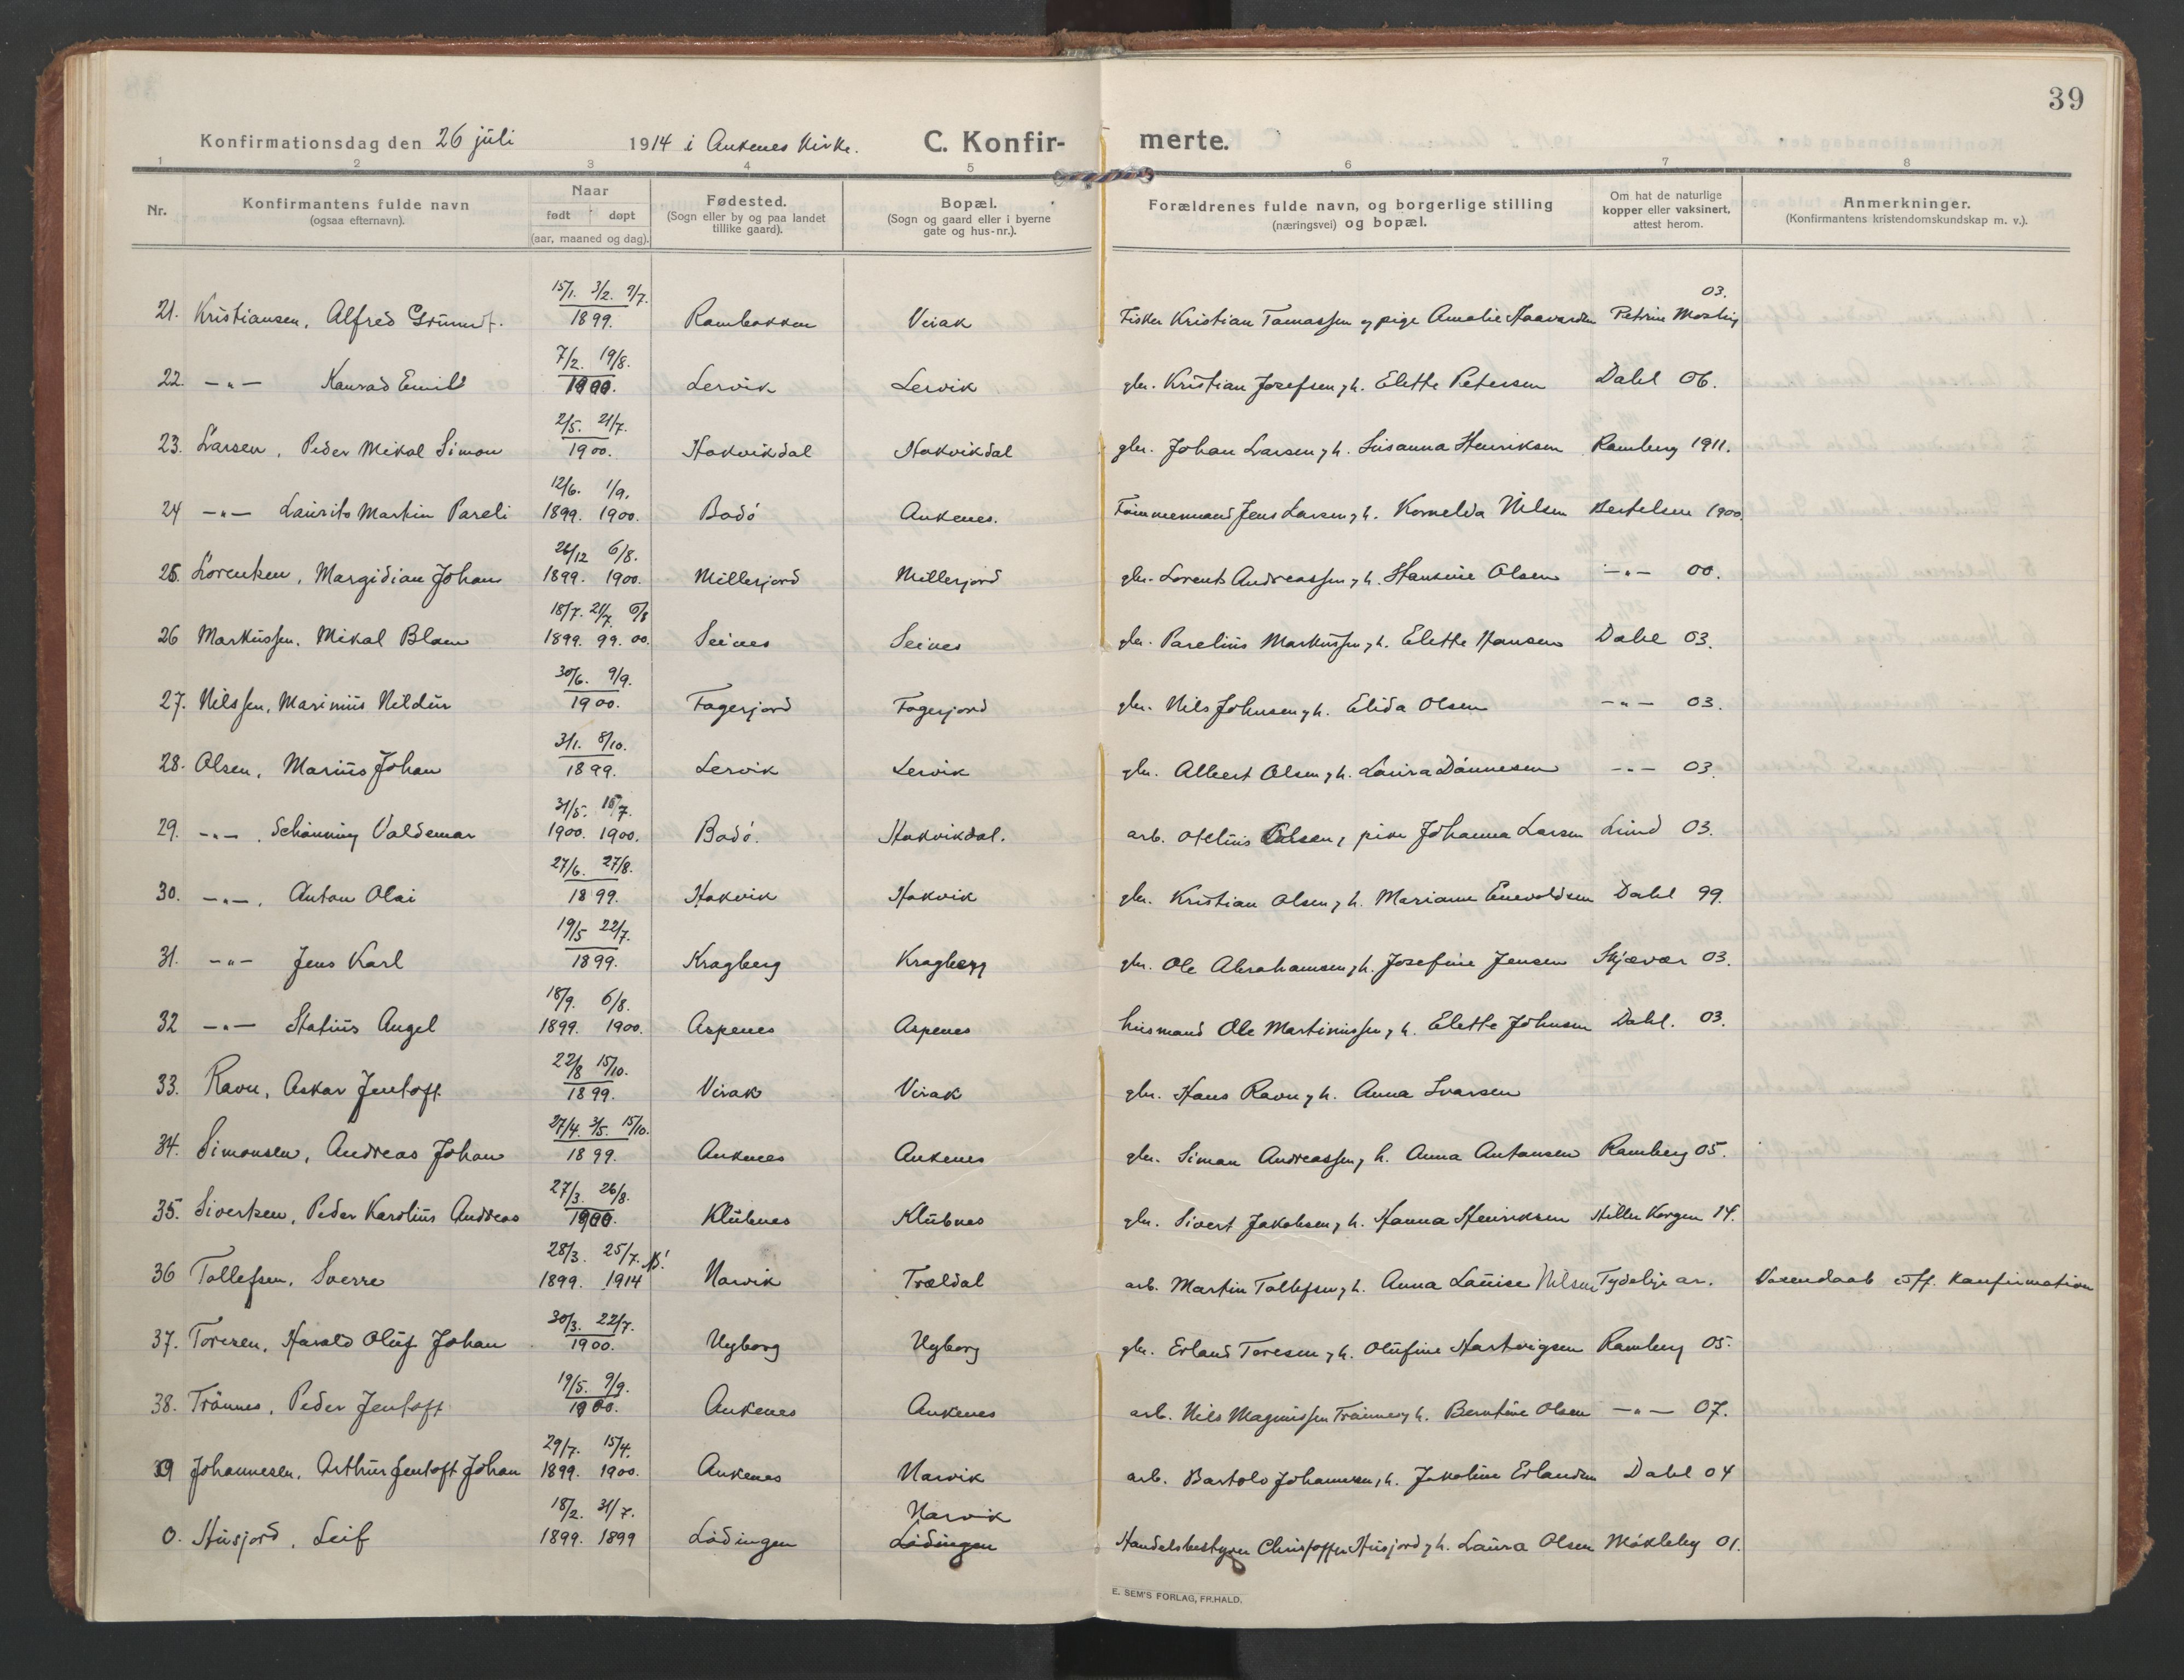 39
Konfirmationsdag den 26 juli 1914 i Ankenes Kirke. C. Konfir- merte.
1 2 3 4 5 6 7 8
Nr. Konfirmantens fulde navn (ogsaa efternavn). Naar født døpt (aar, maaned og dag). Fødested. (Sogn eller by og paa landet tillike gaard). Bopæl. (Sogn og gaard eller i byerne gate og hus-nr.). Forældrenes fulde navn, og borgerlige stilling (næringsvei) og bopæl. Om hat de naturlige kopper eller vaksinert, attest herom. Anmerkninger. (Konfirmantens kristendomskundskap m. v.).
15/1. 3/2. 9/7. 03.
21. Kristiansen, Alfred 1899. Rombakken Virak Fisker Kristian Tomassen og pige Amalie Haavardsen Petrine
7/2. 19/8.
22. -"- Konrad Emil 1900. Lervik Lervik gbr. Kristian Josefsen, h. Elette Petersen Dahl 06.
2/5. 21/7.
23. Larsen, Peder Mikal Simon 1900. Hakvikdal Hakvikdal gbr. Johan Larsen, h. Susanna Henriksen Ramberg 1911.
12/6. 1/9.
24 -"- Laurits Martin Pareli 1899. 1900. Bodö Ankenes. Tömmermand Jens Larsen, h. Kornelda Nilsen Bertelsen 1900.
26/12 6/8.
25. Lorentsen, Margidian Johan 1899. 1900. Millerjord Millerjord gbr. Lorents Andreassen, h. Hansine Olsen -"- 00.
18/7. 21/7. 6/8
26 Markussen, Mikal Blom 1899. 99. 00. Seines Seines gbr. Parelius Markussen, h. Elette Hansen Dahl 03.
30/6. 9/9.
27. Nilssen, Marinius Nildur 1900. Fagerjord Fagerjord gbr. Nils Johnsen, h. Elida Olsen -"- 03.
3/1. 8/10.
28. Olsen, Marius Johan 1899. Lervik Lervik gbr. Albert Olsen, h. Laura Dönnesen -"- 03.
31/5. 15/7.
29. -"-. Schönning Valdemar 1900. 1900. Bodö. Hakvikdal. arb. Otelius Olsen, pike Johanna Larsen Lund 03.
27/6. 27/8.
30. -"-. Anton Olai 1899. Hakvik Hakvik gbr. Kristian Olsen, h. Marianne Enevoldsen Dahl 99.
19/5 22/7.
31. -"- Jens Karl 1899. Kragberg Kragberg gbr. Ole Abrahamsen, h. Josefine Jensen Skjævær 03.
18/9. 6/8.
32 -"- Statius Angel 1899. 1900. Aspenes Aspenes husmand Ole Martinussen, h. Elette Johnsen Dahl. 03.
22/8 15/10.
33. Ravn, Oskar Jentoft. 1899. Virak Virak gbr. Hans Ravn, h. Anna Ivarsen
27/4. 3/5. 15/10.
34. Simonsen, Andreas Johan 1899. Ankenes Ankenes gbr. Simon Andreassen, h. Anna Antonsen Ramberg 05.
27/3. 26/8.
35. Sivertsen, Peder Karolius Andreas 1900. Klubnes Klubnes gbr. Sivert Jakobsen, h. Hanna Henriksen Hille Korgen 14.
28/3. 25/7. N!
36 Tollefsen, Sverre 1899. 1914 Narvik Trældal arb. Martin Tollefsen, h. Anna Lauise Nilsen ar. Voxendaab eft. Konfirmation
30/3. 22/7.
37. Toresen, Harald Oluf Johan 1900. Nyborg Nyborg gbr. Erland Toresen, h. Olufine Hartvigsen Ramberg 05.
19/5. 9/9.
38. Trönnes, Peder Jentoft 1900. Ankenes Ankenes arb. Nils Magnussen Trönnes, h. Berntine Olsen -"- 07.
29/7. 15/4.
39 Johannesen, Arthur Jentoft Johan 1899. 1900. Ankenes Narvik arb. Bartolo Johannesen, h. Jakobine Erlandsen Dahl 04
18/2. 31/7. Narvik
0. Husjord, Leif 1899. 1899 Lödingen Lödingen Handelsbestyrer Christoffer Husjord, h. Laura Olsen Mökleby 01.
E. SEM'S FORLAG, FR.HALD.